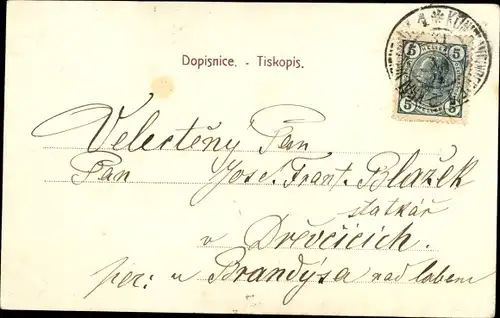 Dopisnice. - Tiskopis.
5 5
5 5
Velectěny Pan
Pan Jos. Frant. Blažek
statkář
v Dřevčicích.
per: u Brandýsa nad Labem